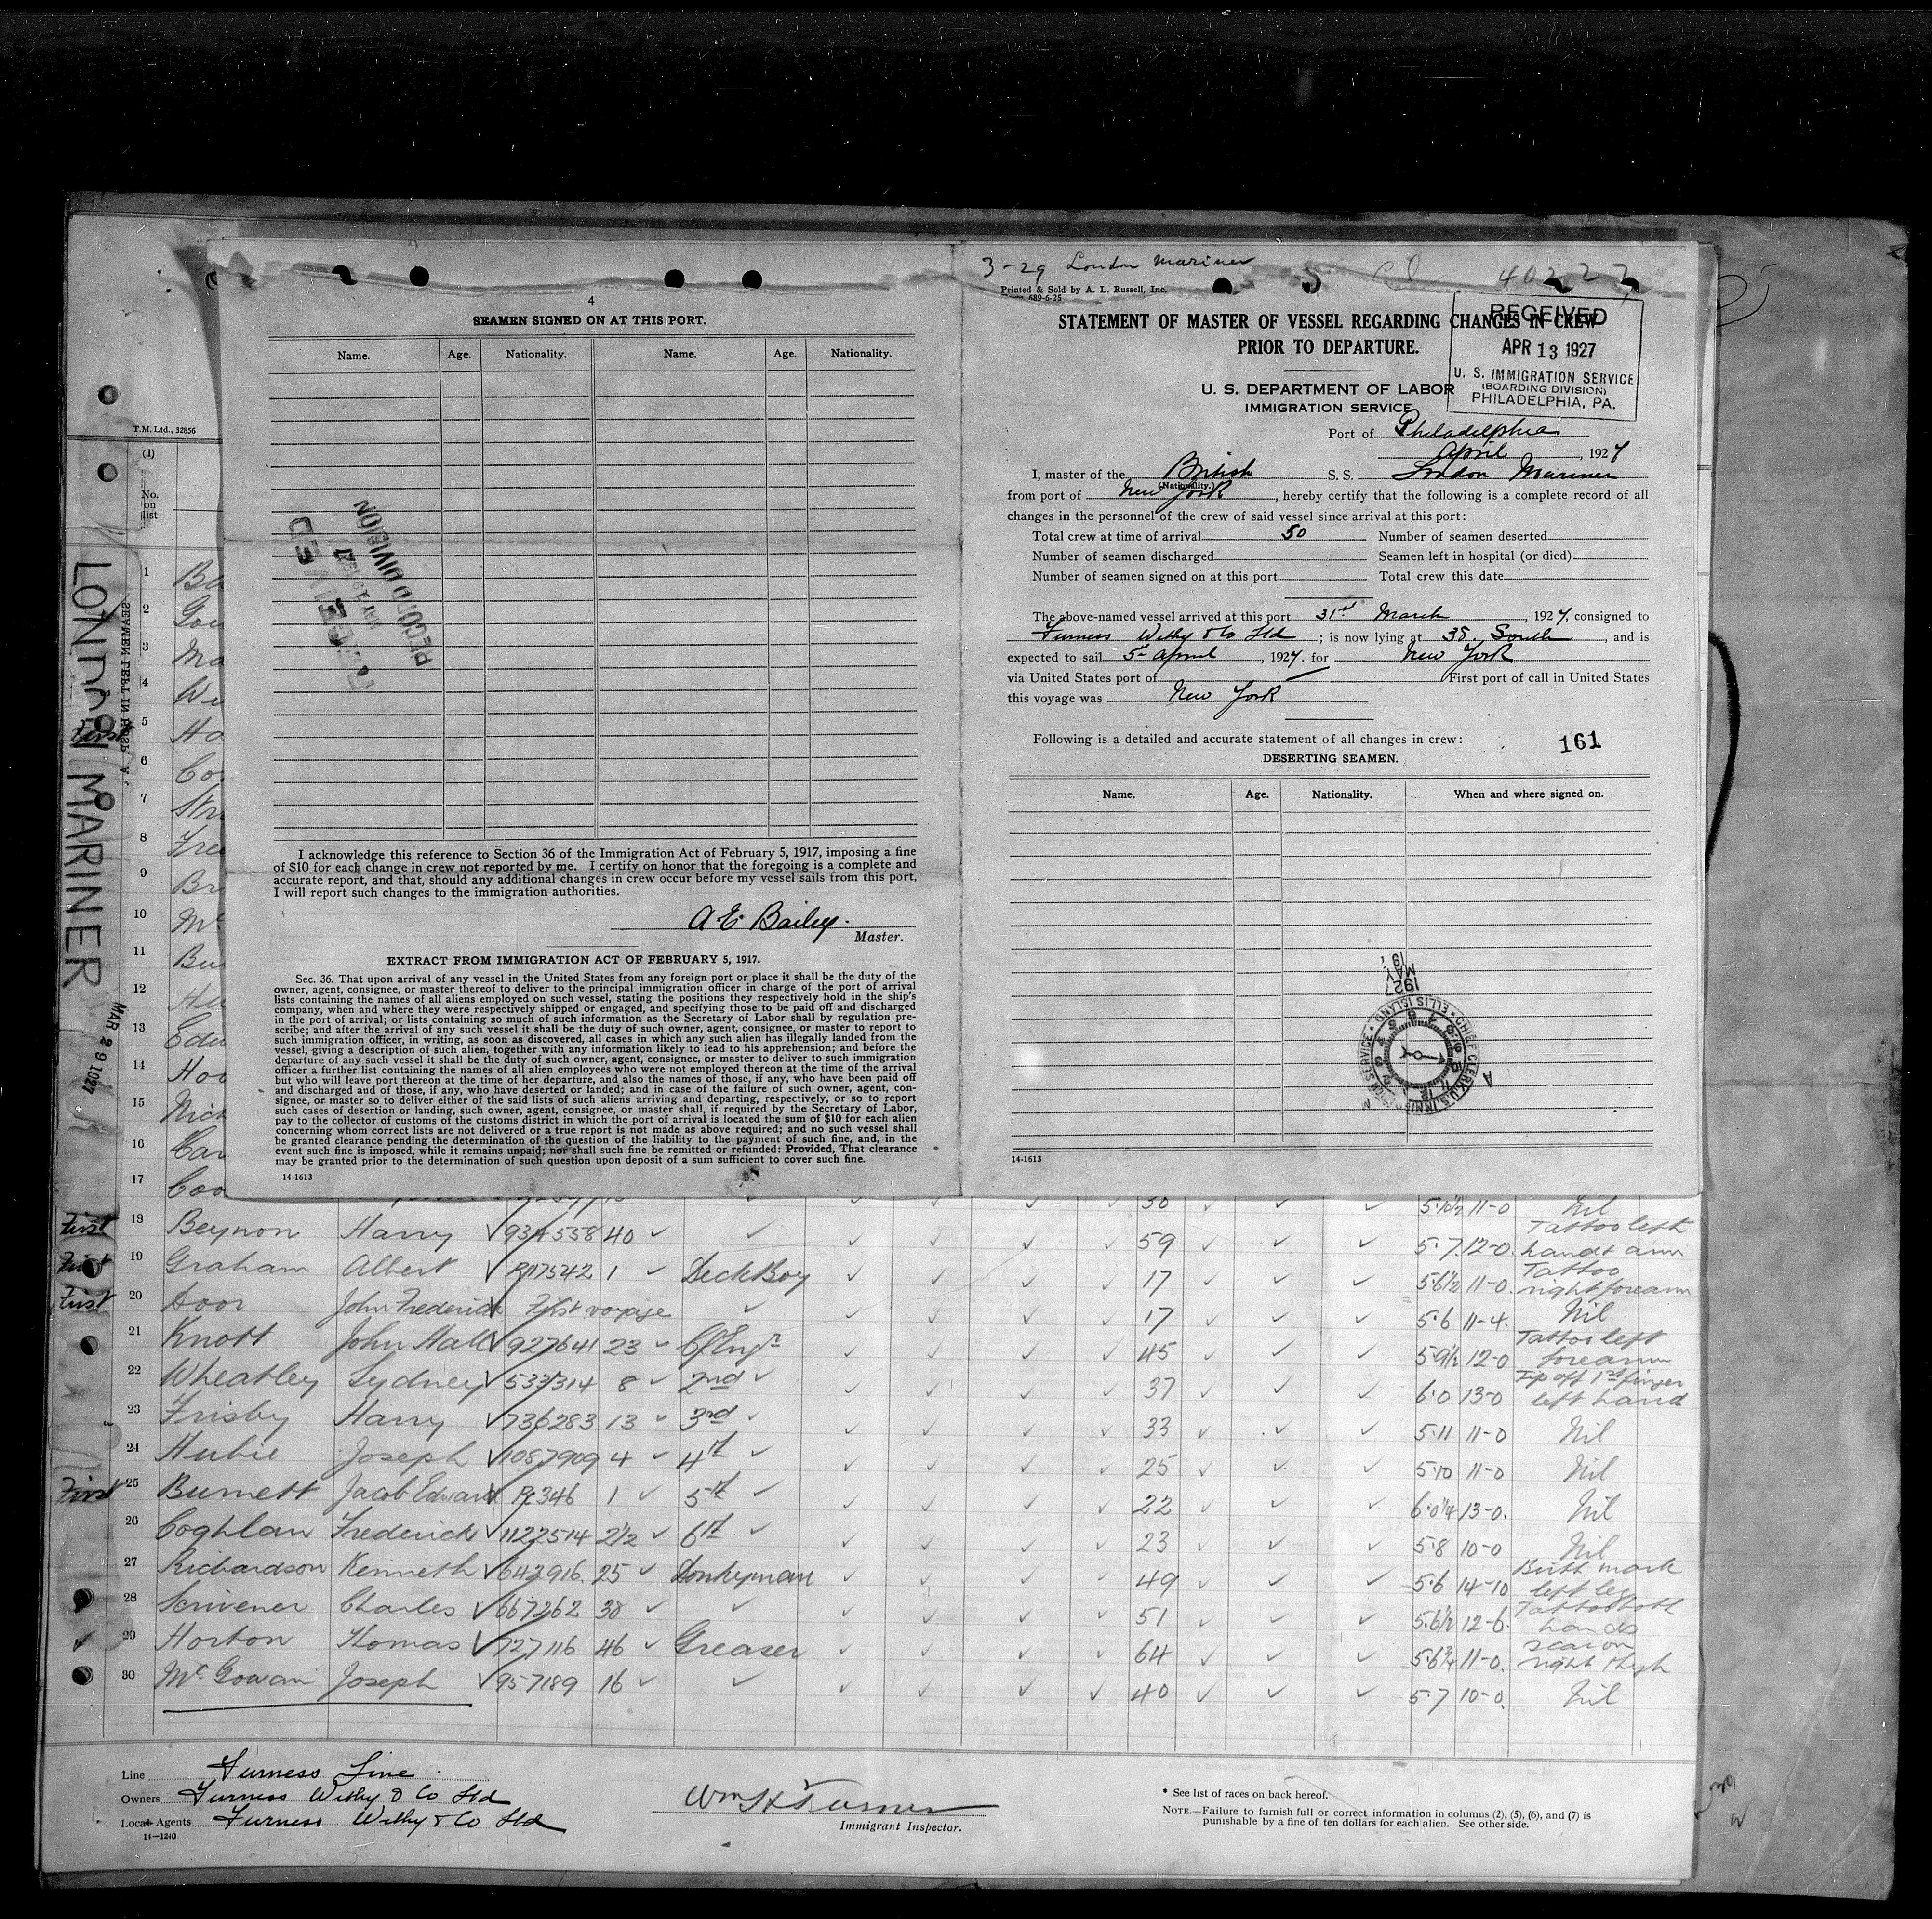 3-29 London Mariner
40227
Printed & Sold by A. L. Russell, Inc.
689-6-25
STATEMENT OF MASTER OF VESSEL REGARDING CHANGES IN CREW
PRIOR TO DEPARTURE.
RECEIVED
APR 13 1927
U. S. IMMIGRATION SERVICE
(BOARDING DIVISION)
PHILADELPHIA, PA.
U. S. DEPARTMENT OF LABOR
IMMIGRATION SERVICE
Port of Philadelphia
April, 1927
I, master of the British S. S. London Mariner
(Nationality.)
from port of New York, hereby certify that the following is a complete record of all
changes in the personnel of the crew of said vessel since arrival at this port:
Total crew at time of arrival 50 Number of seamen deserted
Number of seamen discharged Seamen left in hospital (or died)
Number of seamen signed on at this port Total crew this date
The above-named vessel arrived at this port 31st March, 1927, consigned to
Furness Withy & Co Ltd; is now lying at 38 South, and is
expected to sail 5th April, 1927. for New York
via United States port of First port of call in United States
this voyage was New York
Following is a detailed and accurate statement of all changes in crew:
161
DESERTING SEAMEN.
Name. Age. Nationality. When and where signed on.
MAY 1927
CHIEF CLERK U.S. IMMIGRATION SERVICE ELLIS ISLAND
14-1613
4
SEAMEN SIGNED ON AT THIS PORT.
Name. Age. Nationality. Name. Age. Nationality.
RECEIVED
RECORD DIVISION
I acknowledge this reference to Section 36 of the Immigration Act of February 5, 1917, imposing a fine
of $10 for each change in crew not reported by me. I certify on honor that the foregoing is a complete and
accurate report, and that, should any additional changes in crew occur before my vessel sails from this port,
I will report such changes to the immigration authorities.
A E Bailey.
Master.
EXTRACT FROM IMMIGRATION ACT OF FEBRUARY 5, 1917.
Sec. 36. That upon arrival of any vessel in the United States from any foreign port or place it shall be the duty of the
owner, agent, consignee, or master thereof to deliver to the principal immigration officer in charge of the port of arrival
lists containing the names of all aliens employed on such vessel, stating the positions they respectively hold in the ship's
company, when and where they were respectively shipped or engaged, and specifying those to be paid off and discharged
in the port of arrival; or lists containing so much of such information as the Secretary of Labor shall by regulation pre-
scribe; and after the arrival of any such vessel it shall be the duty of such owner, agent, consignee, or master to report to
such immigration officer, in writing, as soon as discovered, all cases in which any such alien has illegally landed from the
vessel, giving a description of such alien, together with any information likely to lead to his apprehension; and before the
departure of any such vessel it shall be the duty of such owner, agent, consignee, or master to deliver to such immigration
officer a further list containing the names of all alien employees who were not employed thereon at the time of the arrival
but who will leave port thereon at the time of her departure, and also the names of those, if any, who have been paid off
and discharged and of those, if any, who have deserted or landed; and in case of the failure of such owner, agent, con-
signee, or master so to deliver either of the said lists of such aliens arriving and departing, respectively, or so to report
such cases of desertion or landing, such owner, agent, consignee, or master shall, if required by the Secretary of Labor,
pay to the collector of customs of the customs district in which the port of arrival is located the sum of $10 for each alien
concerning whom correct lists are not delivered or a true report is not made as above required; and no such vessel shall
be granted clearance pending the determination of the question of the liability to the payment of such fine, and, in the
event such fine is imposed, while it remains unpaid; nor shall such fine be remitted or refunded: Provided, That clearance
may be granted prior to the determination of such question upon deposit of a sum sufficient to cover such fine.
14-1613
T.M. Ltd., 32856
(1)
No.
on
list
LONDON MARINER
MAR 29 1927
SEAMEN LEFT IN HOSP.
1 Ba
2 Gou
3 Ma
4 Wi
First 5 Ha
6 Co
7 Str
8 Free
9 Br
10 Mc
11 Bu
12 Hu
13 Edw
14 Hoo
15 Nich
16 Car
17 Coo 30 5·10½ 11-0 Nil
First 18 Beynon Harry 934558 40 59 5·7 12-0 Tattoo left hand & arm
First 19 Graham Albert R117542 1 Deck Boy 17 5·6½ 11-0 Tattoo right forearm
First 20 Door John Frederick First voyage 17 5·6 11-4 Nil
21 Knott John Hall 927641 23 C/Engr 45 5·9½ 12-0 Tattoo left forearm
22 Wheatley Sydney 533314 8 2nd 37 6·0 13-0 Tip off 1st finger left hand
23 Frisby Harry 736283 13 3rd 33 5·11 11-0 Nil
24 Hubie Joseph 1087909 4 4th 25 5·10 11-0 Nil
First 25 Burnett Jacob Edward R346 1 5th 22 6·0¼ 13-0 Nil
26 Coghlan Frederick 1122514 2½ 6th 23 5·8 10-0 Nil
27 Richardson Kenneth 643916 25 Donkeyman 49 5·6 14-10 Birth mark left leg
28 Scrivener Charles 667262 38 51 5·6½ 12-6 Tattoo both hands
29 Horton Thomas 727116 46 Greaser 64 5·6¾ 11-0 Scar on right thigh
30 McGowan Joseph 957189 16 40 5·7 10-0 Nil
Line Furness Line
Owners Furness Withy & Co Ltd
Local Agents Furness Withy & Co Ltd
14-1240
Wm H Turner
Immigrant Inspector.
* See list of races on back hereof.
NOTE.—Failure to furnish full or correct information in columns (2), (5), (6), and (7) is
punishable by a fine of ten dollars for each alien. See other side.